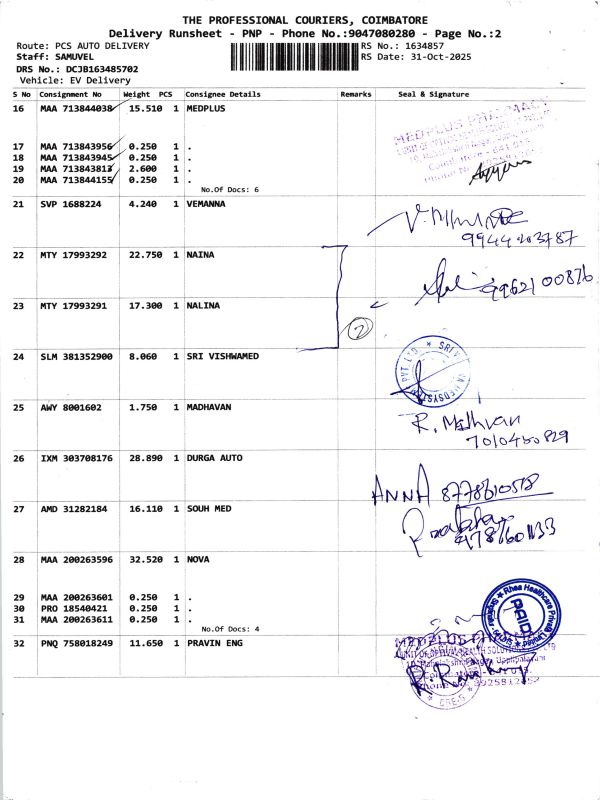 THE PROFESSIONAL COURIERS, COIMBATORE
Delivery Runsheet - PNP - Phone No.:9047080280 - Page No.:2
Route: PCS AUTO DELIVERY RS No.: 1634857
Staff: SAMUVEL RS Date: 31-Oct-2025
DRS No.: DCJB163485702
Vehicle: EV Delivery
S No Consignment No Weight PCS Consignee Details Remarks Seal & Signature
16 MAA 713844038 15.510 1 MEDPLUS
MEDPLUS PHARMACY
17 MAA 713843956 0.250 1 .
18 MAA 713843945 0.250 1 .
19 MAA 713843813 2.600 1 .
20 MAA 713844155 0.250 1 .
No.Of Docs: 6
21 SVP 1688224 4.240 1 VEMANNA
22 MTY 17993292 22.750 1 NAINA
99621 00876
23 MTY 17993291 17.300 1 NALINA
2
24 SLM 381352900 8.060 1 SRI VISHWAMED
25 AWY 8001602 1.750 1 MADHAVAN
R. Madhvan
7010460829
26 IXM 303708176 28.890 1 DURGA AUTO
ANNA 8778610518
27 AMD 31282184 16.110 1 SOUH MED
28 MAA 200263596 32.520 1 NOVA
29 MAA 200263601 0.250 1 .
30 PRO 18540421 0.250 1 .
31 MAA 200263611 0.250 1 .
No.Of Docs: 4
Rhea Healthcare Private Limited
PAID
32 PNQ 758018249 11.650 1 PRAVIN ENG
MEDPLUS